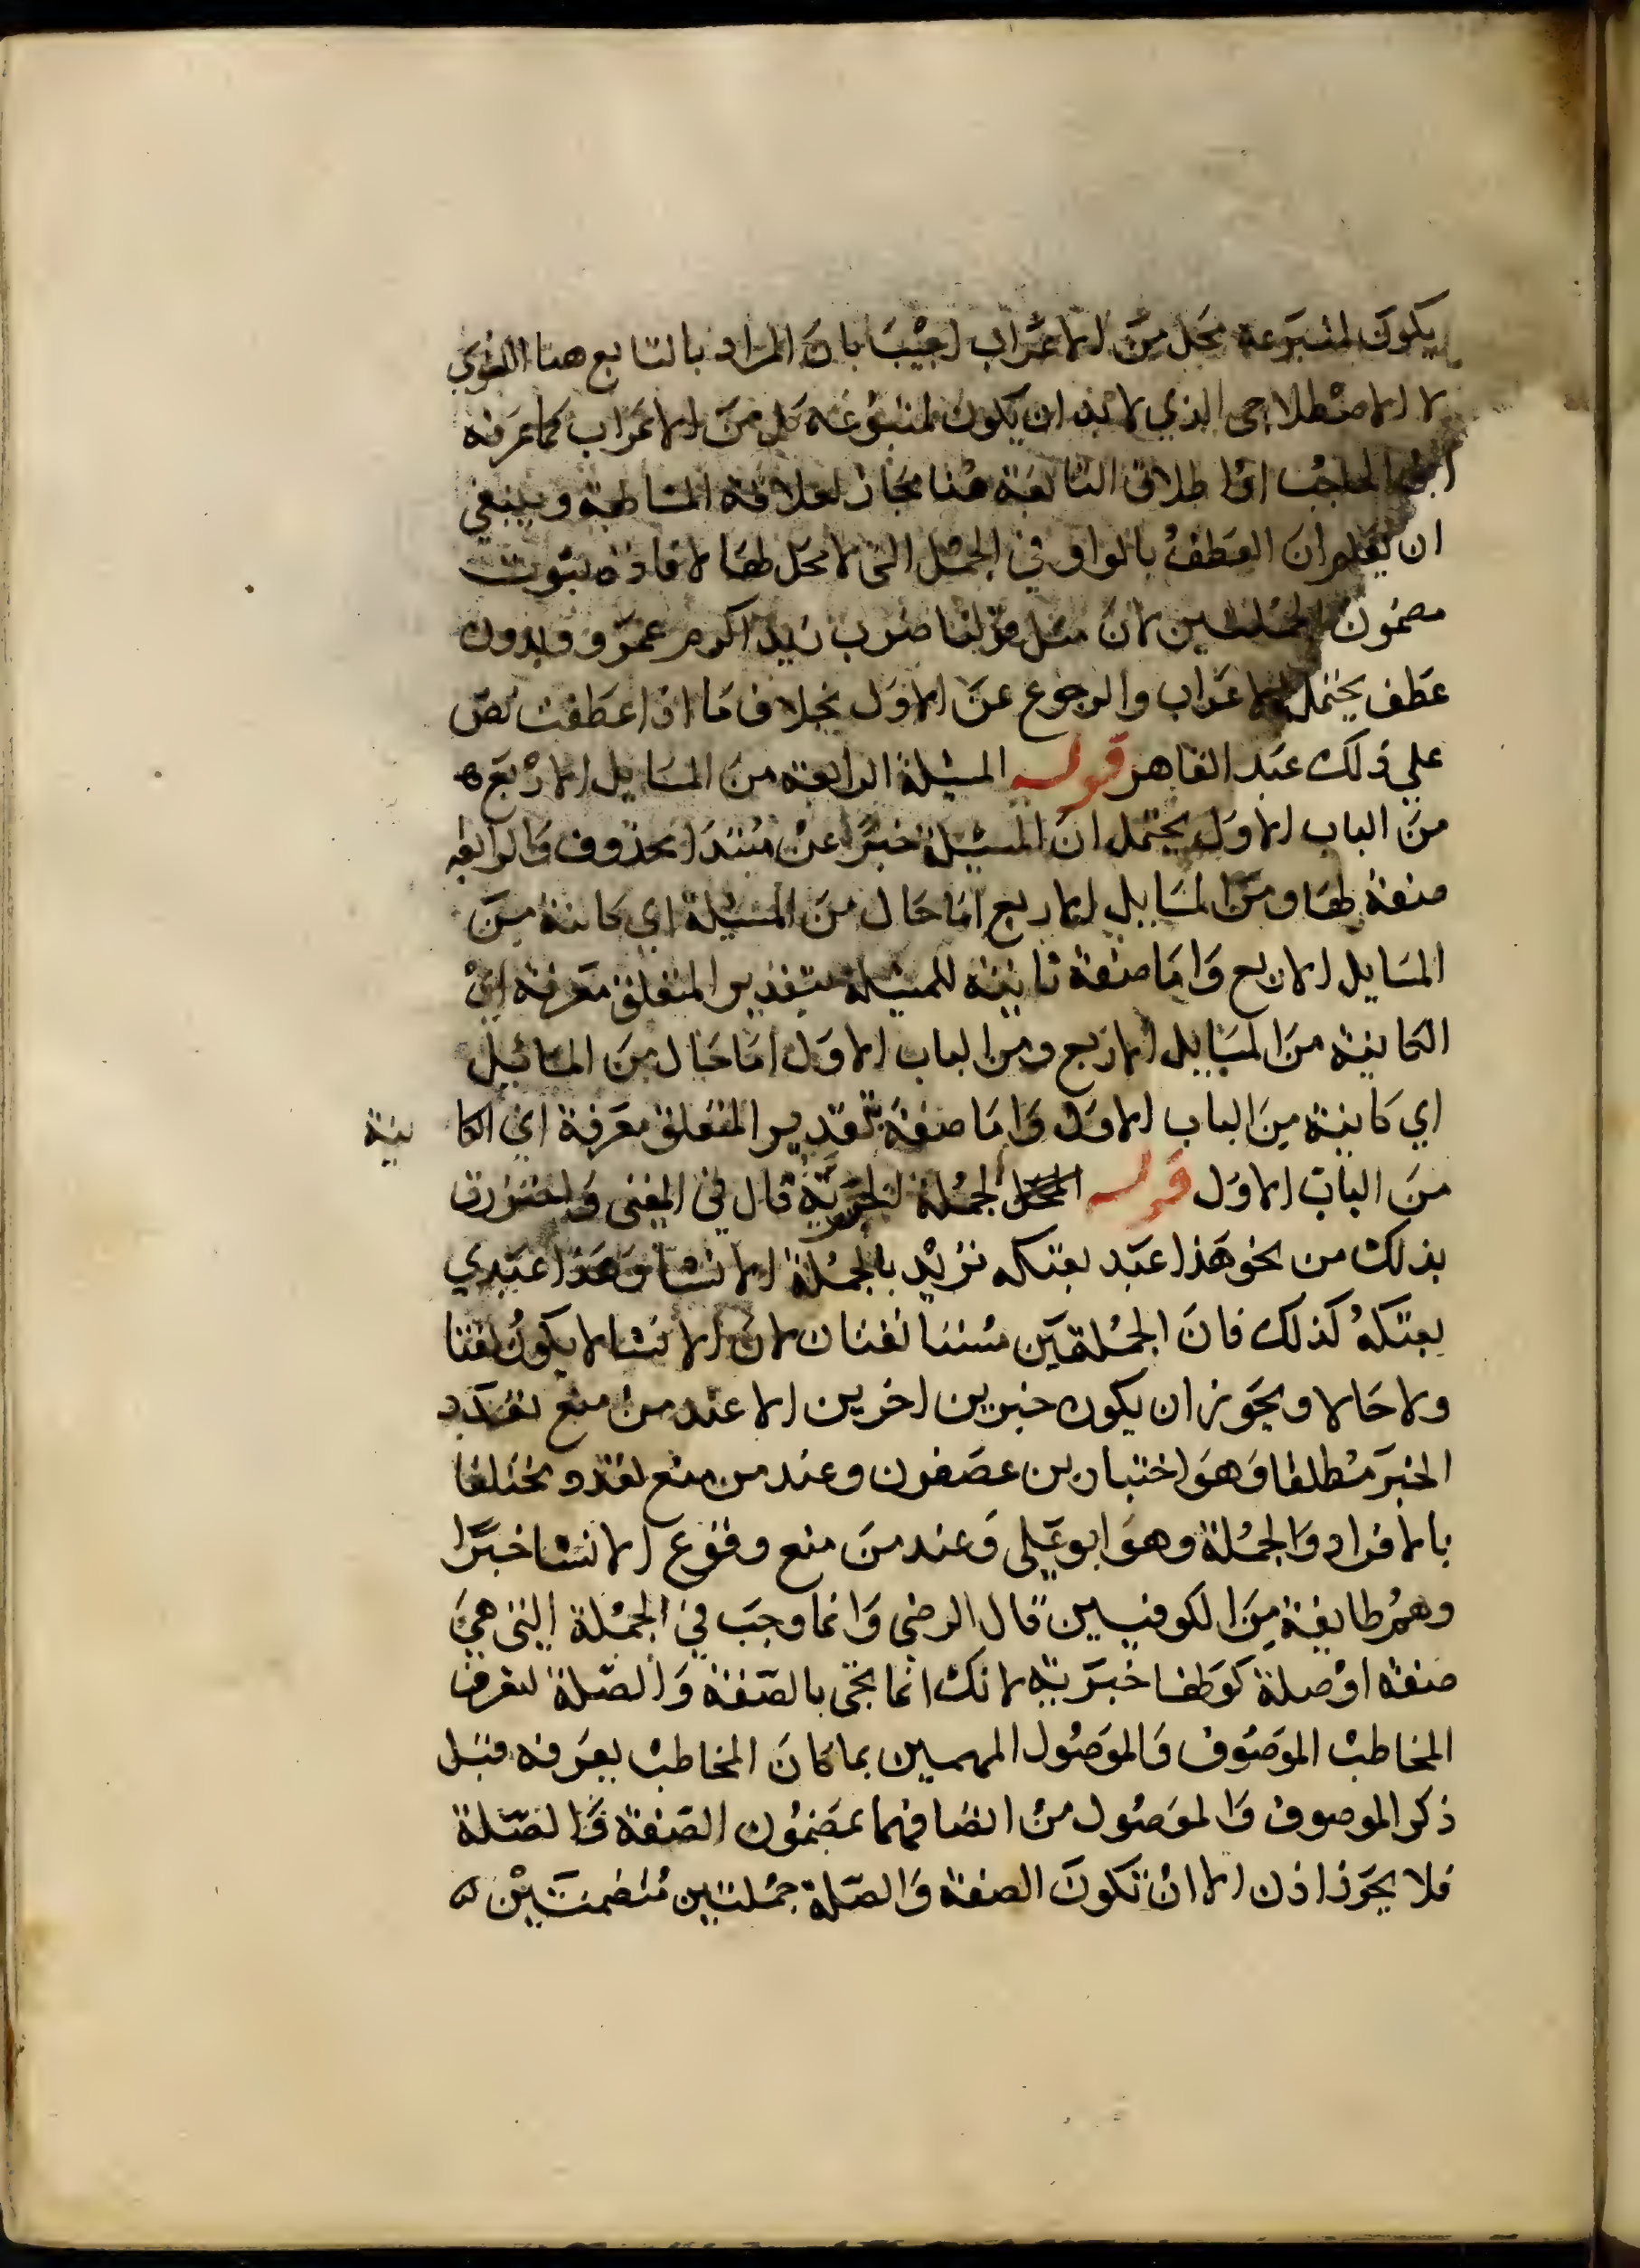 يكون لمتبوعة محل من الاعراب اجيب بان المراد بالتابع هنا اللغوي
لا الاصطلاحى الذي لا بد ان يكون لمتبوعه محل من الاعراب كما عرفه
ابن الحاجب او اطلاق التابعة هنا مجاز لعلاقة المشابهة وينبغي
ان يعلم ان العطف بالواو في الجمل التى لا محل لها لافادة ثبوت
مضمون الجملتين لان مثل قولنا ضرب زيد اكرم عمرو وبدون
عطف يحتمل الاعراب والرجوع عن الاول بخلاف ما اذا عطفت نص
علي ذلك عبد القاهر قوله المسئلة الرابعة من المسايل الاربع
من الباب الاول يحتمل ان المسئلة خبرا عن مبتدا محذوف والرابعه
صفة لها ومن المسايل الاربع اما حال من المسئلة اي كاينة من
المسايل الاربع واما صفة ثانية للمسئلة بتقدير المتعلق معرفة اي
الكاينة من المسايل الاربع ومن الباب الاول اما حال من المسائيل
اي كاينة من الباب الاول واما صفة بتقدير المتعلق معرفة اي الكا ينة
من الباب الاول قوله الجملة الخبرية قال في المغنى واحترزت
بذلك من نحو هذا عبد بعتكه تريد بالجملة الانشا وهذا عبدي
بعتكه كذلك فان الجملتين مستانفتان لان الانشا لا يكون نعتا
ولا حالا ويجوز ان يكون خبرين اخرين الا عند من منع تعدد
الخبر مطلقا وهو اختيار بن عصفور وعند من منع تعدد مختلفا
بالافراد والجملة وهو ابو علي وعند من منع وقوع الانشا خبرا
وهم طايفة من الكوفيين قال الرضي وانما وجب في الجملة التي هي
صفة او صلة كونها خبرية لانك انما تجى بالصفة والصلة لتعرف
المخاطب الموصوف والموصول المبهمين بما كان المخاطب يعرفه قبل
ذكر الموصوف والموصول من اتصافهما بمضمون الصفة والصلة
فلا يجوز اذن الا ان تكون الصفة والصلة جملتين متضمنتين